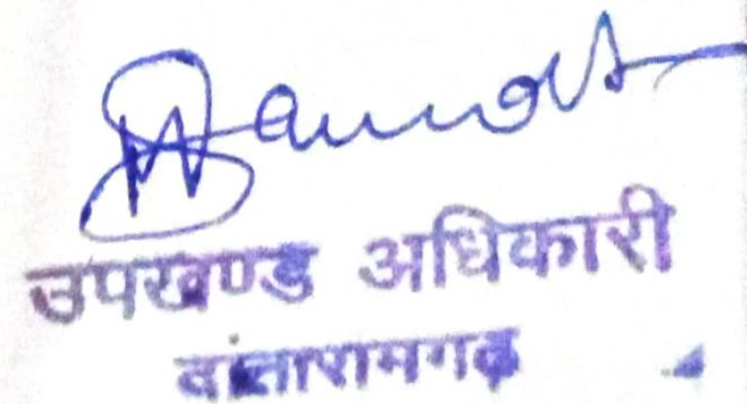 उपखण्ड अधिकारी
दांतारामगढ़